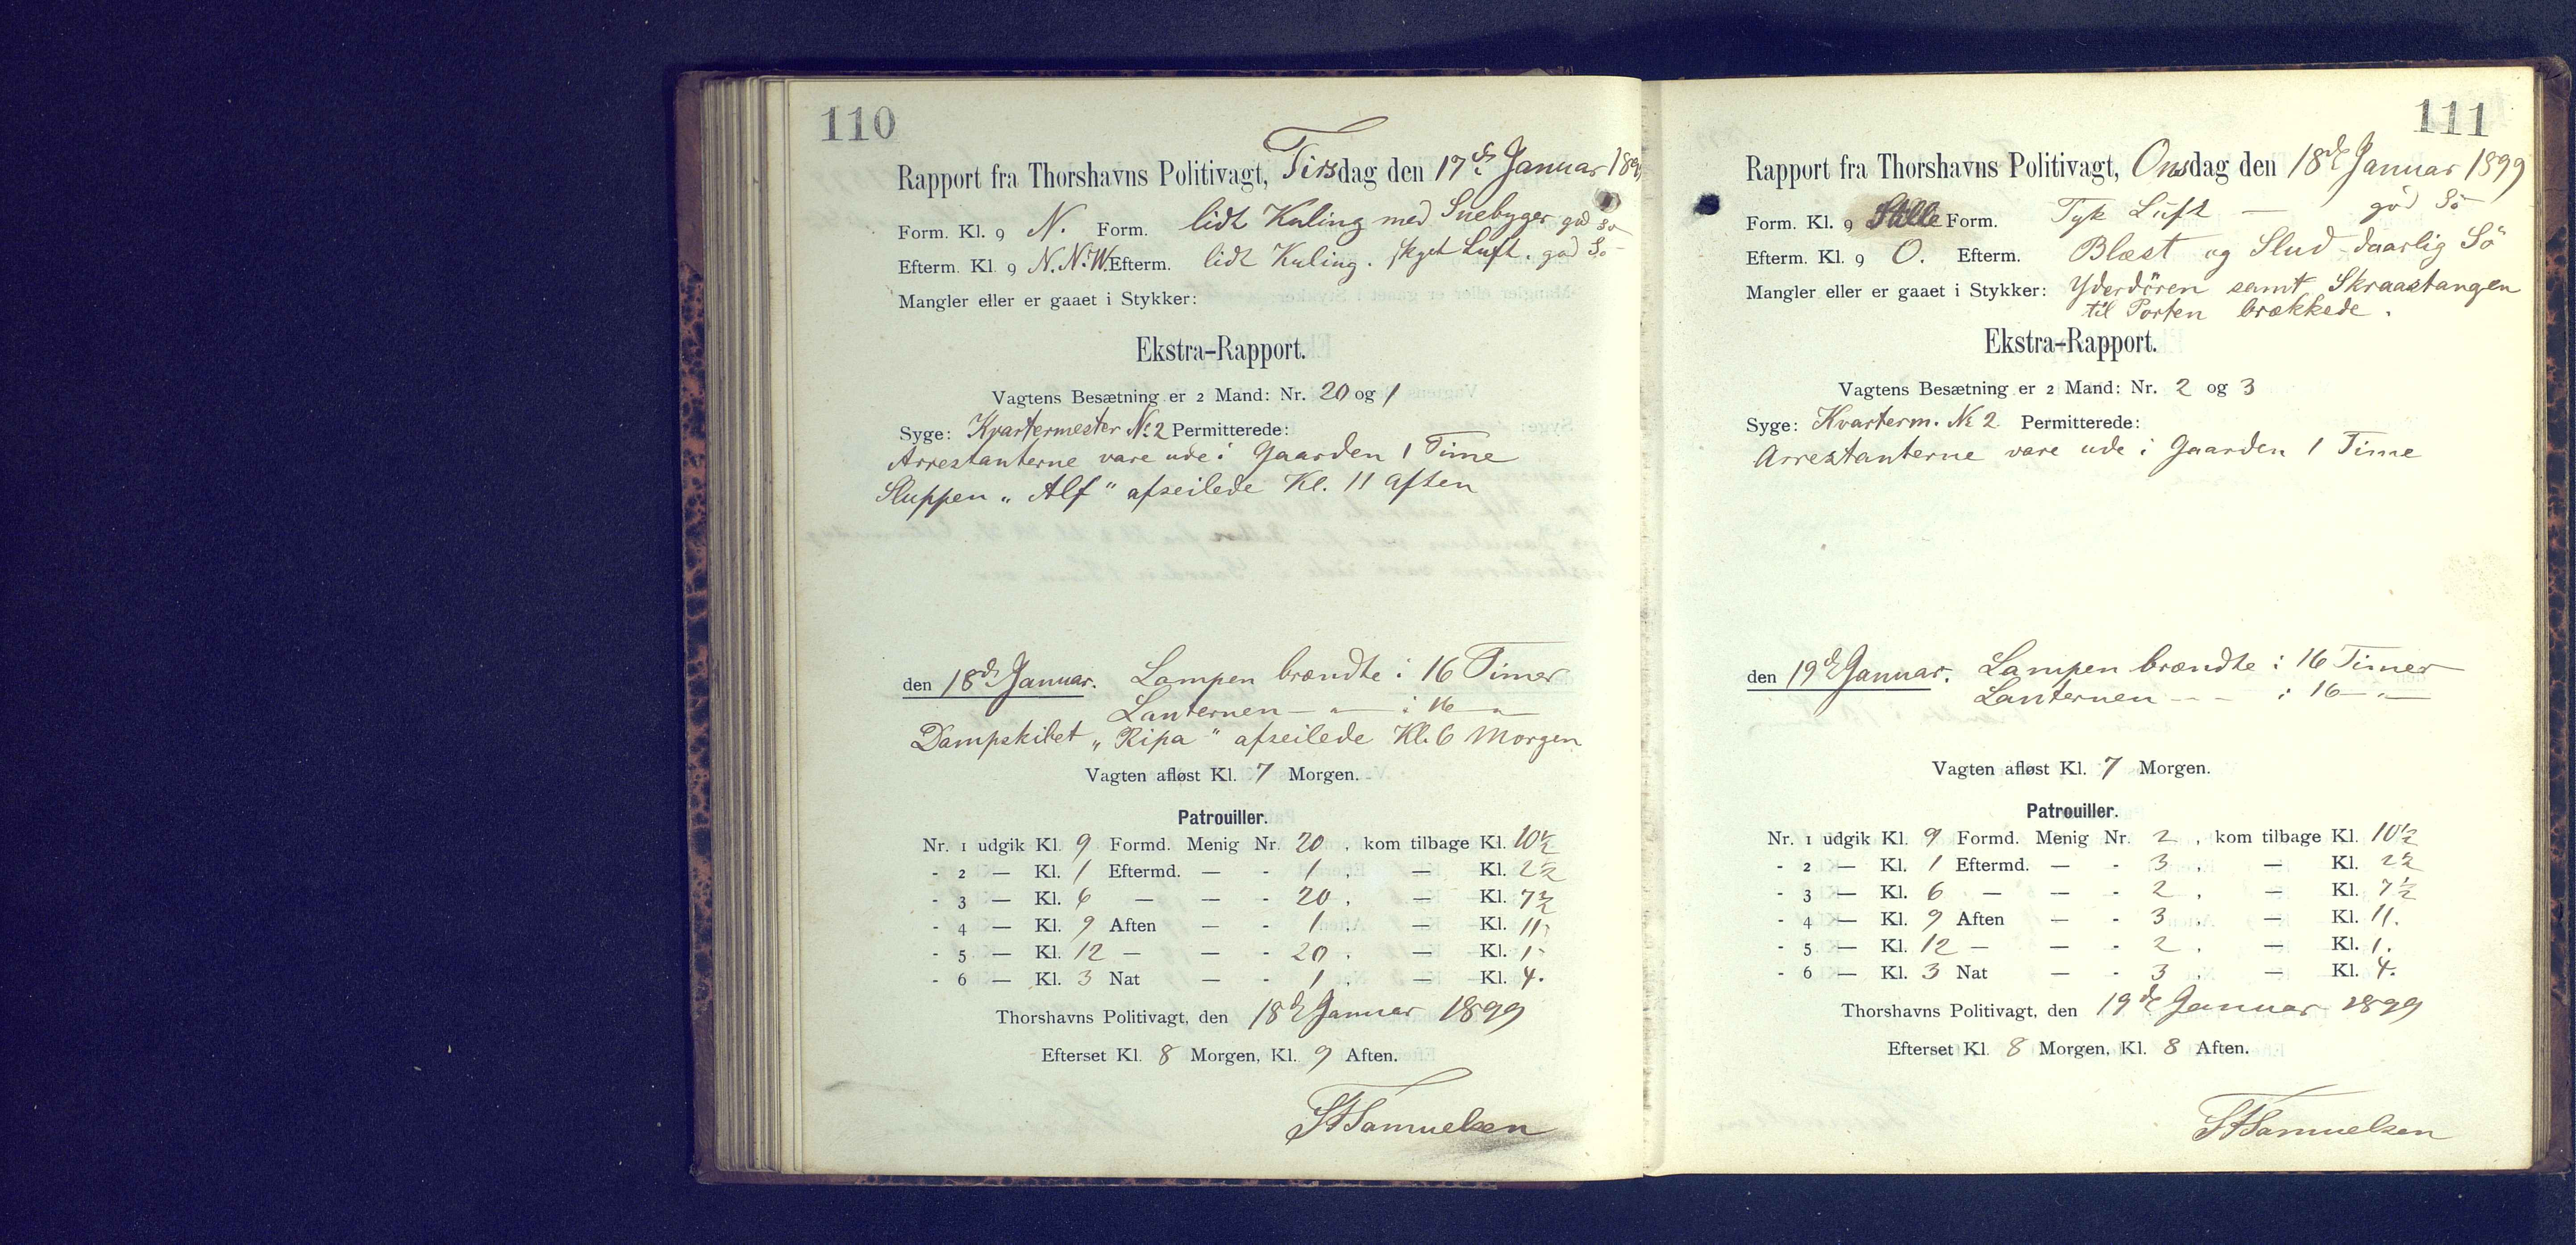 110
Rapport fra Thorshavns Politivagt, Tirsdag den 17de Januar 1899
Form. Kl. 9 N. Form. lidt Kuling med Snebyger god Sö
Efterm. Kl. 9 N.N.W. Efterm. lidt Kuling. skyet Luft. god Sö
Mangler eller er gaaet i Stykker:
Ekstra-Rapport.
Vagtens Besætning er 2 Mand: Nr. 20 og 1
Syge: Kvartermester No. 2 Permitterede:
Arrestanterne vare ude i Gaarden 1 Time
Sluppen „Alf" afseilede Kl. 11 Aften
den 18de Januar. Lampen brændte i 16 Timer
Lanternen — " — i 16 — " —
Dampskibet „Ripa" afseilede Kl. 6 Morgen
Vagten afløst Kl. 7 Morgen.
Patrouiller.
Nr. 1 udgik Kl. 9 Formd. Menig Nr. 20, kom tilbage Kl. 10½
- 2 — Kl. 1 Eftermd. — - 1, — Kl. 2½
- 3 — Kl. 6 — — - 20, — Kl. 7½
- 4 — Kl. 9 Aften — - 1, — Kl. 11.
- 5 — Kl. 12 — — - 20, — Kl. 1.
- 6 — Kl. 3 Nat — - 1, — Kl. 4.
Thorshavns Politivagt, den 18de Januar 1899
Efterset Kl. 8 Morgen, Kl. 9 Aften.
Samuelsen
111
Rapport fra Thorshavns Politivagt, Onsdag den 18de Januar 1899
Form. Kl. 9 Stille Form. Tyk Luft — god Sö
Efterm. Kl. 9 O. Efterm. Blæst og Slud - daarlig Sö
Mangler eller er gaaet i Stykker: Yderdören samt Skraastangen
til Porten brækkede.
Ekstra-Rapport.
Vagtens Besætning er 2 Mand: Nr. 2 og 3
Syge: Kvarterm. No 2 Permitterede:
Arrestanterne vare ude i Gaarden 1 Time
den 19de Januar. Lampen brændte i 16 Timer
Lanternen - - i 16 — " —
Vagten afløst Kl. 7 Morgen.
Patrouiller.
Nr. 1 udgik Kl. 9 Formd. Menig Nr. 2, kom tilbage Kl. 10½
- 2 — Kl. 1 Eftermd. — - 3, — Kl. 2½
- 3 — Kl. 6 — — - 2, — Kl. 7½
- 4 — Kl. 9 Aften — - 3, — Kl. 11.
- 5 — Kl. 12 — — - 2, — Kl. 1.
- 6 — Kl. 3 Nat — - 3, — Kl. 4.
Thorshavns Politivagt, den 19de Januar 1899
Efterset Kl. 8 Morgen, Kl. 8 Aften.
Samuelsen